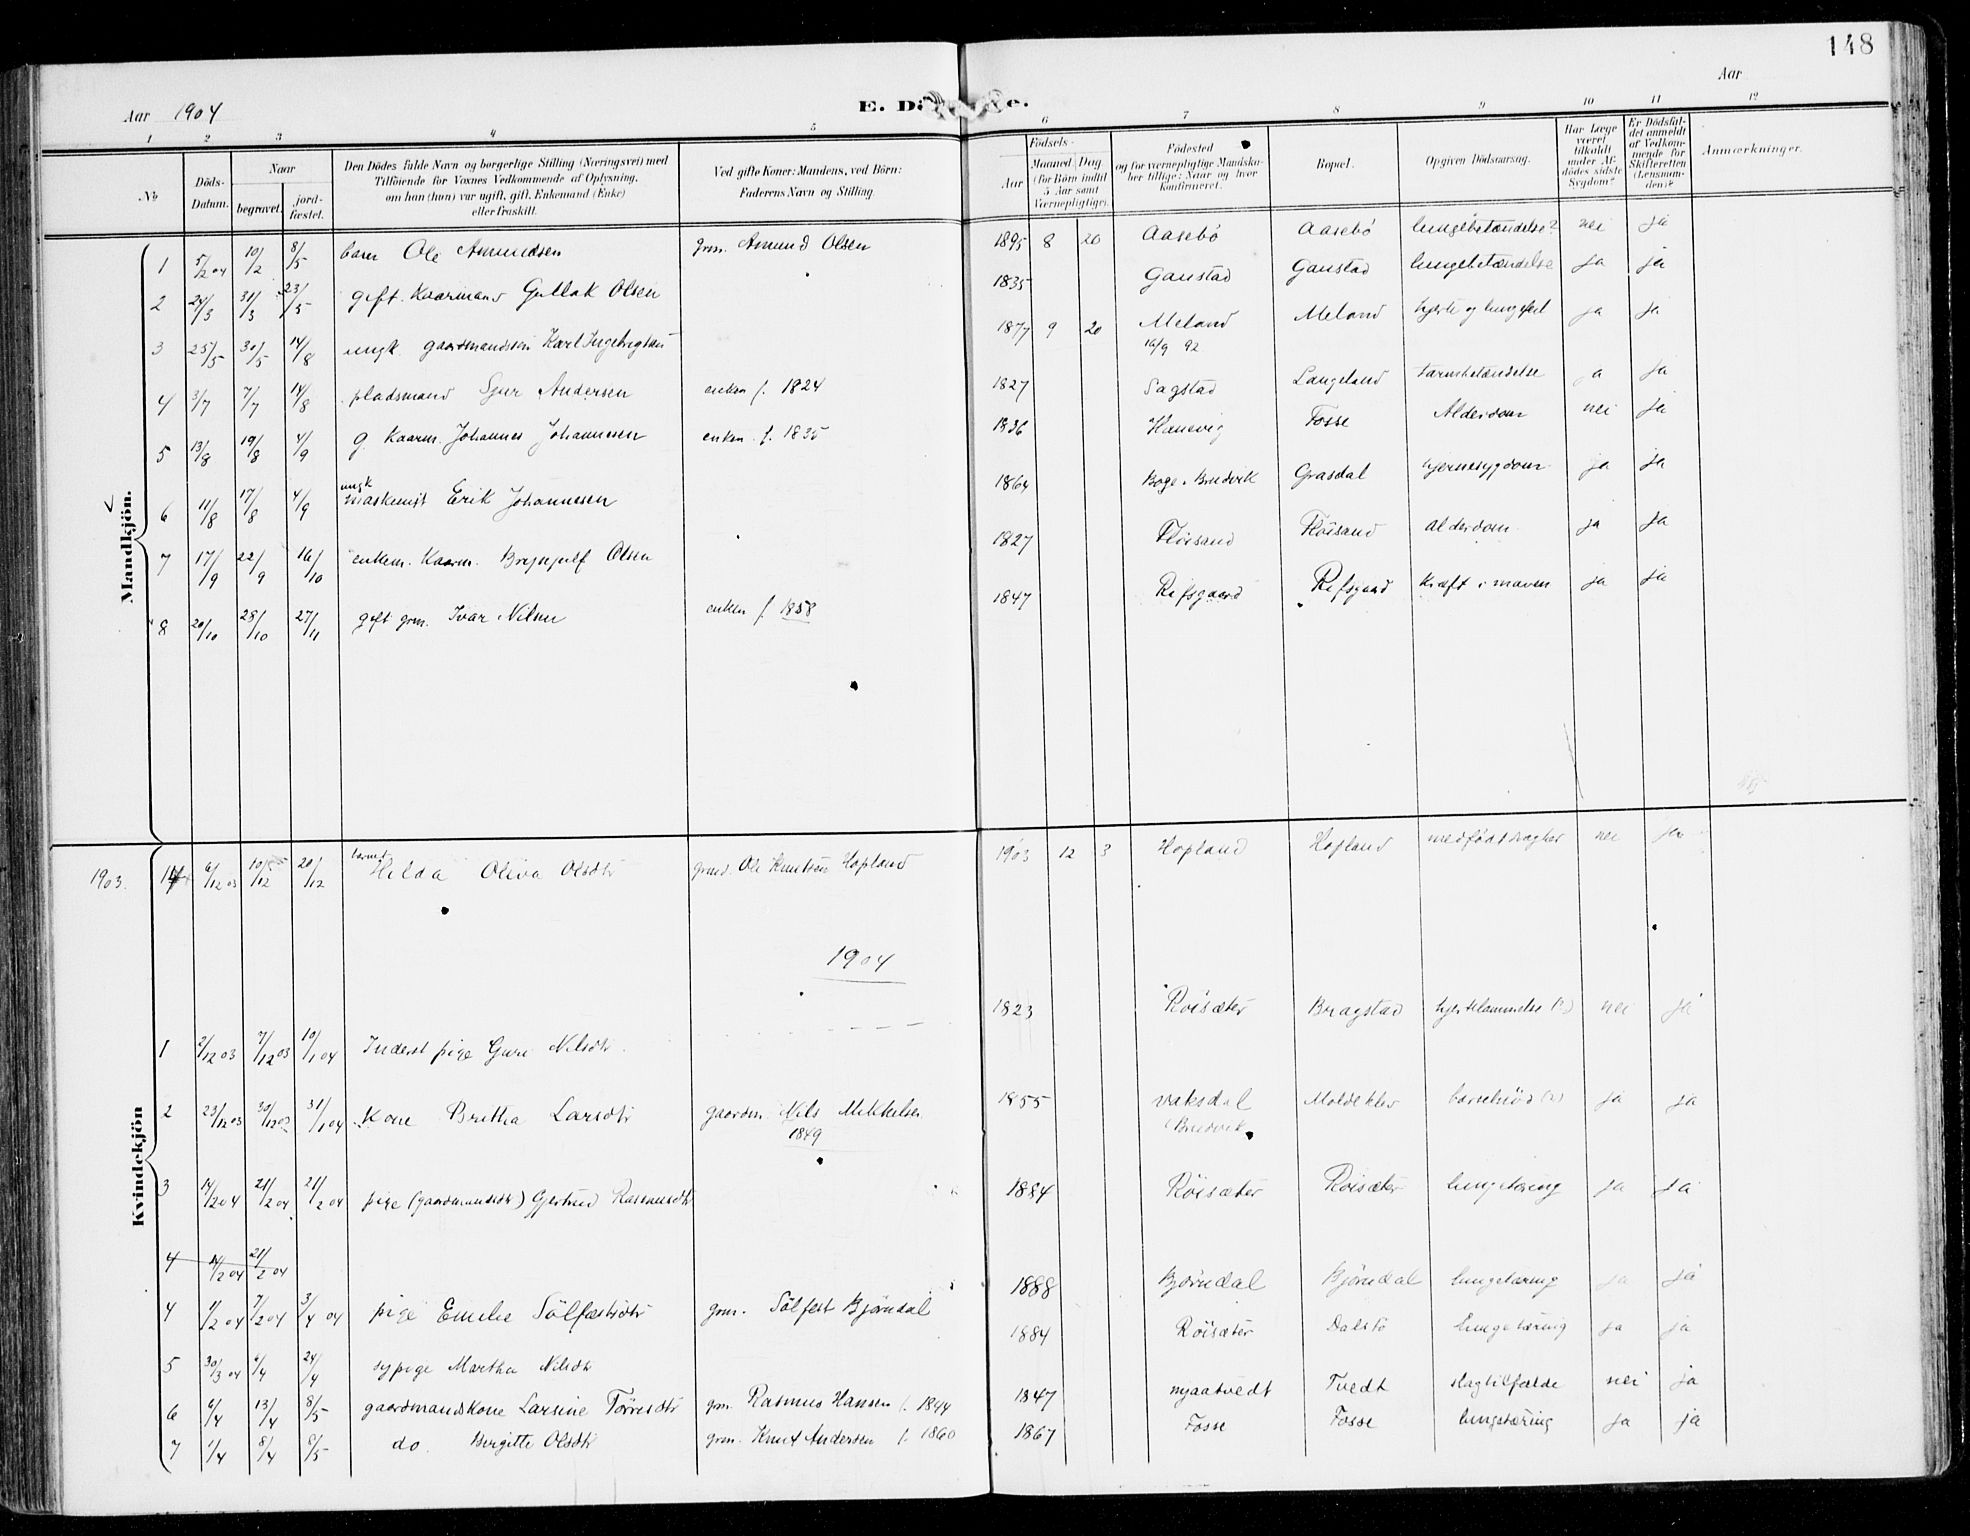 148
Aar 1904
E. Dö e.
Aar
1 2 3 4 5 6 7 8 9 10 11 12
No
Döds-Datum.
Naar
begravet.
jord-fæstet.
Den Dödes fulde Navn og borgerlige Stilling (Næringsvei) med
Tilföiende for Voxnes Vedkommende af Oplysning,
om han (hun) var ugift, gift, Enkemand (Enke)
eller fraskilt.
Ved gifte Koner: Mandens, ved Börn:
Faderens Navn og Stilling.
Födsels-
Aar
Maaned. Dag.
(for Börn indtil 5 Aar samt Værnepligtige).
Födested
og for værnepligtige Mandska-
ber tillige: Naar og hvor
Konfirmeret.
Bopæl.
Opgiven Dödsaarsag.
Har Læge været tilkaldt under Af-dödes sidste Sygdom?
Er Dödsfal-det anmeldt af Vedkom-mende for Skifteretten (Lensman-den)?
Anmærkninger.
Mandkjön.
1 5/2 04 10/2 8/5 barn Ole Amundsen grm. Amund Olsen 1895 8 20 Aasebö Aasebö lungebetændelse? nei ja
2 24/3 31/3 23/5 gift. Kaarmand Gullak Olsen 1835 Gaustad Gaustad lungebetændelse ja ja
3 25/5 30/5 14/8 ungk. gaardmandssön Karl Ingebrigtsen 1877 9 20 Meland Meland hjerte og lungefeil ja ja
16/9 92
4 3/7 7/7 14/8 pladsmand Sjur Andersen enken f. 1824 1827 Sagstad Langeland tarmbetændelse ja ja
5 13/8 19/8 4/9 g. Kaarm. Johannes Johannesen enken f. 1835 1836 Hanevig Fosse Alderdom nei ja
6 11/8 17/8 4/9 ungk maskinist Erik Johannesen 1864 Boge Bruvik Grasdal hjernesygdom ja ja
7 17/9 22/9 16/10 enkem. Kaarm. Brynjulf Olsen 1827 Flöisand Flöisand alderdom ja ja
8 20/10 28/10 27/11 gift grm. Ivar Nilsen enken f. 1858 1847 Refsgaard Refsgaard Kræft i maven ja ja
Kvindekjön
1903. 14 6/12 03 10/12 20/12 barnet Hilda Oliva Olsdtr grmd. Ole Knutsen Hopland 1903 12 3 Hopland Hopland medfödt svaghed nei ja
1904
1 2/12 03 7/12 03 10/1 04 Inderst pige Guri Nilsdtr. 1823 Röisæter Bragstad hjertelammelse (?) nei ja
2 23/12 03 30/12 03 31/1 04 Kone Britha Larsdtr gaardm. Nils Mikkelsen 1855 Vaksdal Moldeklev barselnöd (?) ja ja
1849 (Bruvik
3 14/2 04 21/2 04 21/2 04 pige (gaardmandsdtr) Gjertrud Rasmusdtr 1884 Röisæter Röisæter lungetæring ja ja
4 14/2 04 21/2 04
4 1/2 04 7/2 04 3/4 04 pige Emilie Sölfestsdtr grm. Sölfest Bjørndal 1888 Bjørndal Bjørndal lungetæring ja ja
5 30/3 04 6/4 24/4 sypige Martha Nilsdtr 1884 Röisæter Dalstö lungetæring ja ja
6 6/4 13/4 8/5 gaardmandskone Larsine Törresdtr grm. Rasmus Hansen f. 1844 1847 Mjaatvedt Tvedt slagtilfælde nei ja
7 1/4 8/4 8/5 do. Birgitte Olsdtr grm. Knut Andersen f. 1860 1867 Fosse Fosse lungetæring ja ja